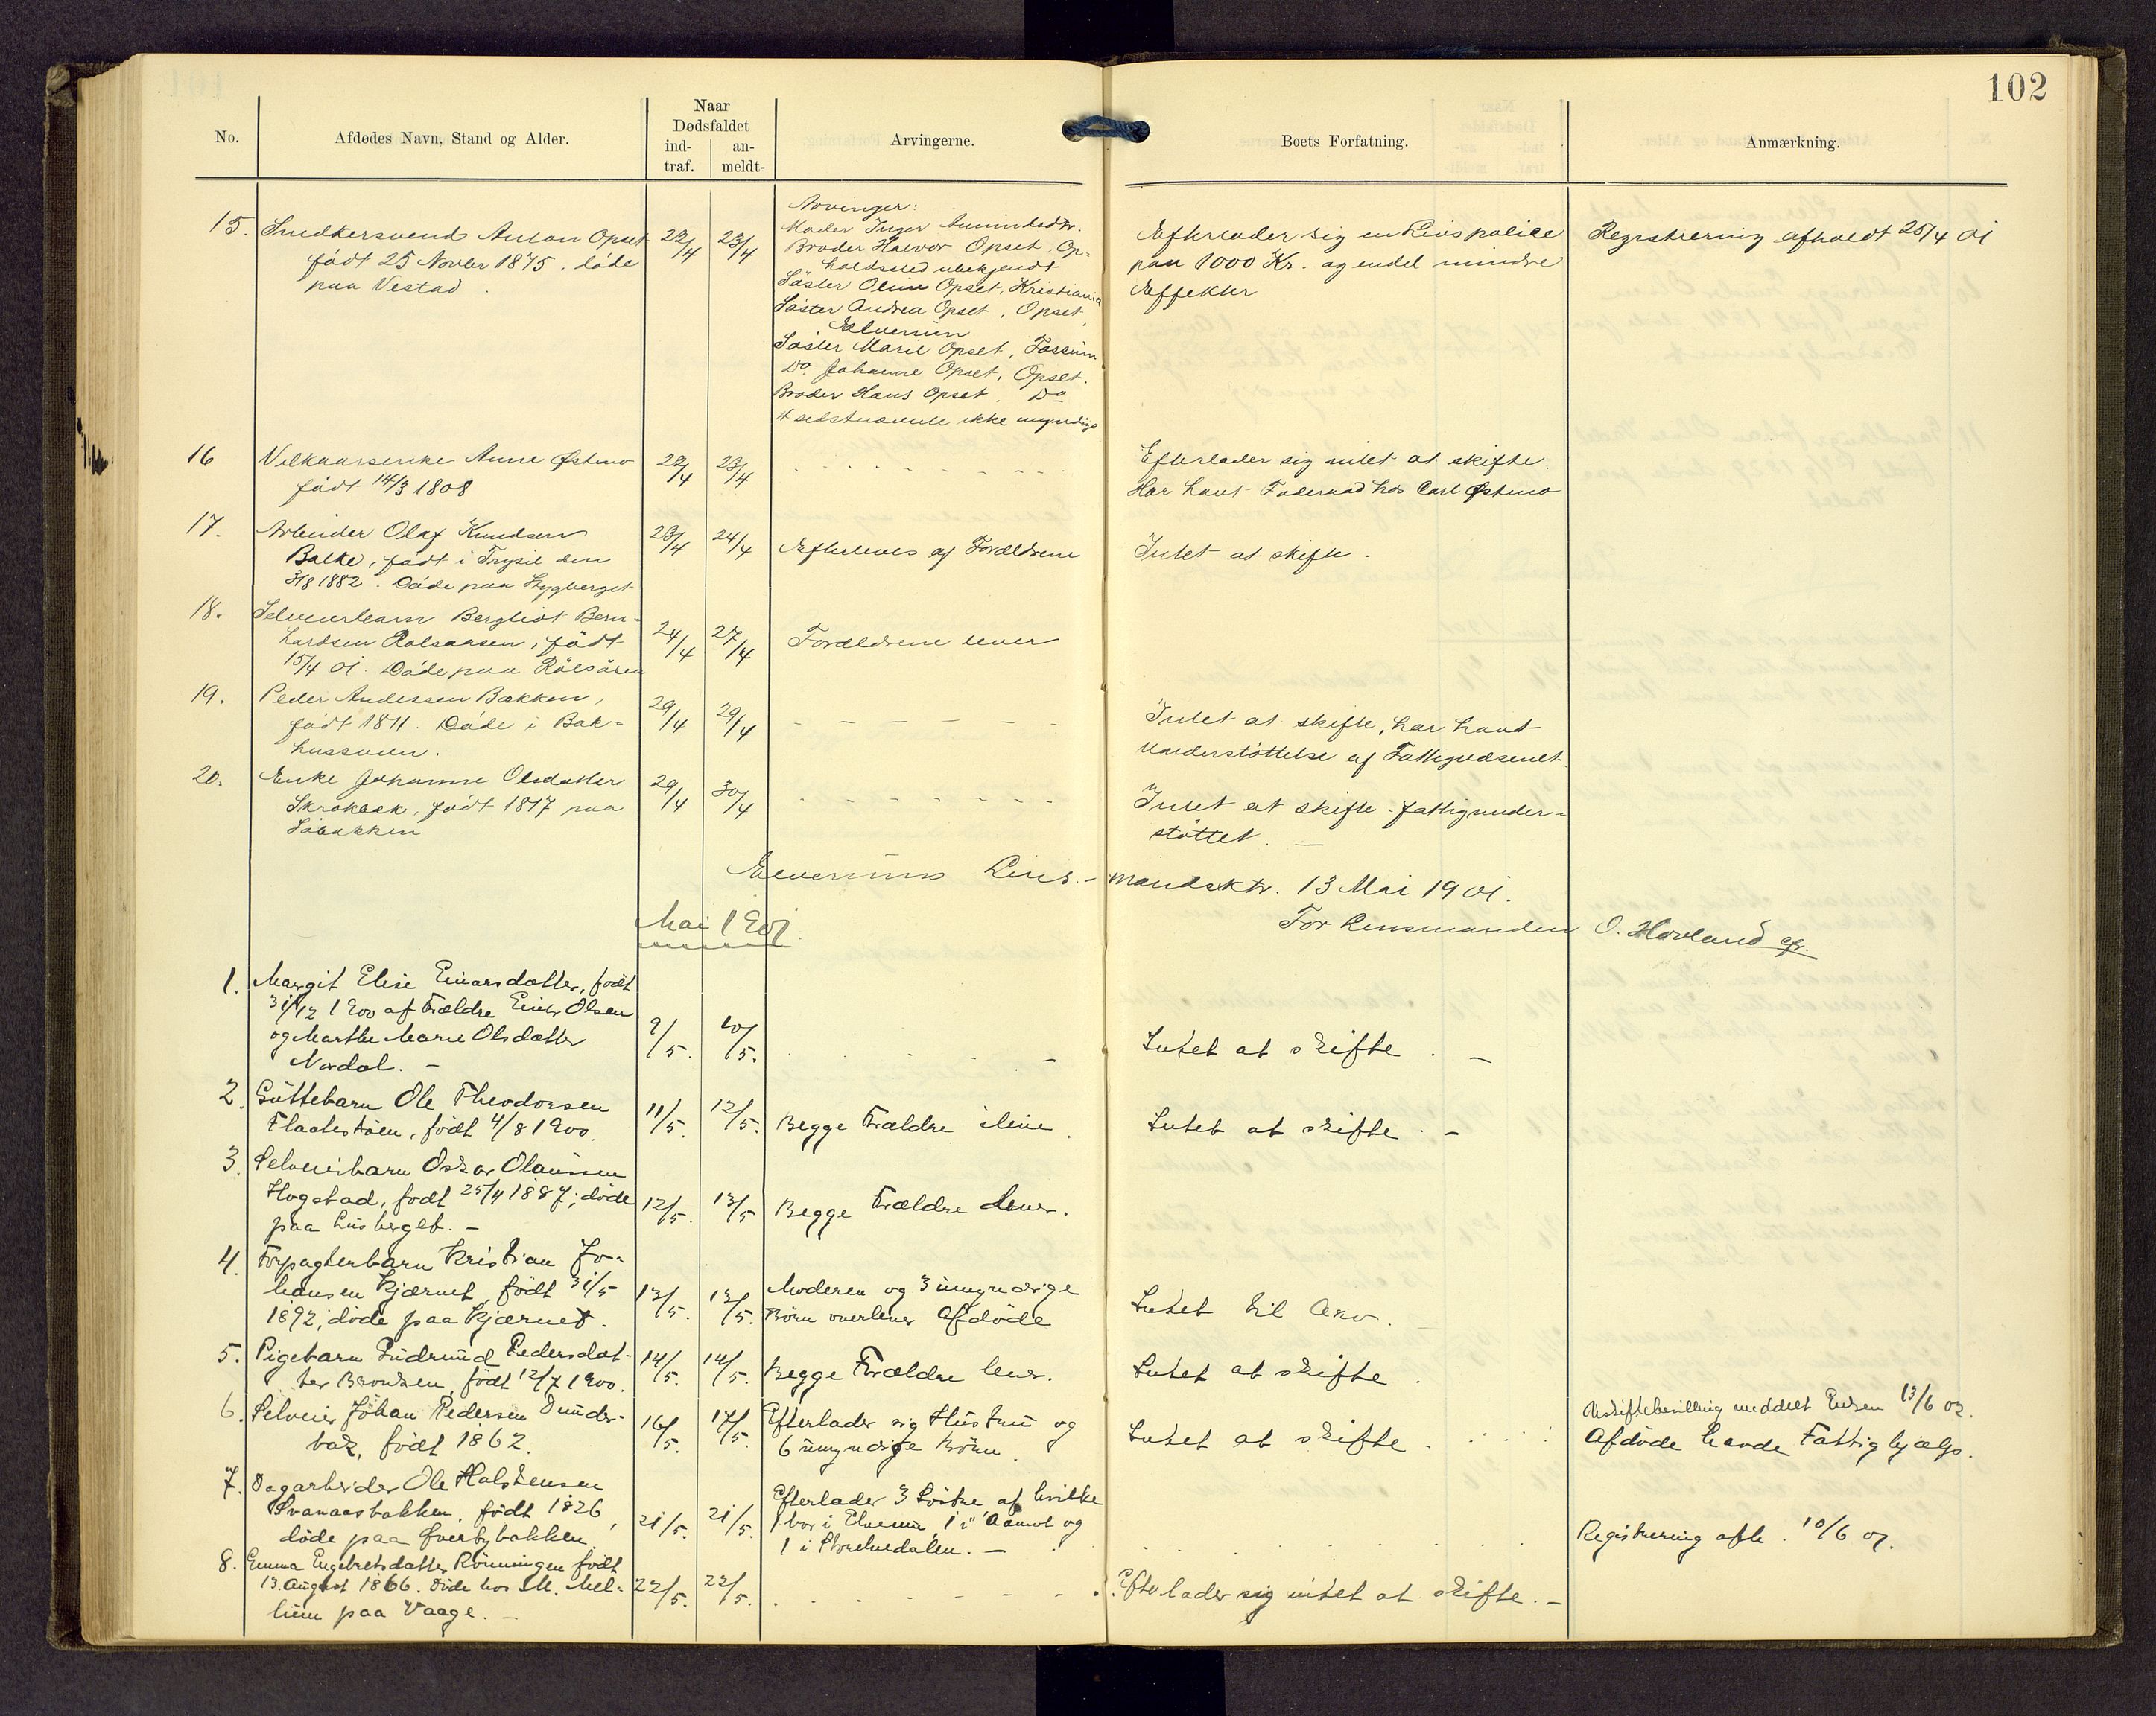 102
No.
Afdødes Navn, Stand og Alder.
Naar
Dødsfaldet
ind-
traf.
an-
meldt-
Arvingerne.
Boets Forfatning.
Anmærkning.
15. Snedkersvend Anton Opset
født 25 Novber 1875, døde
paa Vestad.
22/4 23/4
Arvinger:
Moder Inger Amundsdtr.
Broder Halvor Opset, Op-
holdssted ubekjendt
Søster Oline Opset, Kristiania
Søster Andrea Opset, Opset,
Elverum
Søster Marie Opset, Fossum
Do. Johanne Opset, Opset.
Broder Hans Opset. Do
4 sidstnævnte ikke myndige
Efterlader sig en Livspolice
paa 1000 Kr. og endel mindre
Effekter
Registrering afholdt 25/4 01
16 Vilkaarsenke Anne Østmo
født 14/3 1808
22/4 23/4
Efterlader sig intet at skifte.
Har havt Føderaad hos Carl Østmo
17. Arbeider Olaf Knudsen
Balke, født i Trysil den
3/8 1882. Døde paa Stygberget
23/4 24/4
Efterleves af Forældrene
Intet at skifte.
18. Selveierbarn Bergliot Bern-
hardsen Rolsaasen, født
15/4 01. Døde paa Rölsåsen
24/4 27/4
Forældrene lever
19. Peder Andersen Bakken,
født 1811. Døde i Bak-
hussveen.
29/4 29/4
Intet at skifte, har havt
Understøttelse af Fattigvæsenet.
20. Enke Johanne Olsdatter
Skrokbæk, født 1817 paa
Søbakken
29/4 30/4
Intet at skifte - fattigunder-
støttet.
Elverums Lens-mandsktr. 13 Mai 1901.
For Lensmanden O. Hovland
Mai 1901.
1. Margit Elise Einarsdatter, født
31/12 1900 af Forældre Einar Olsen
og Marthe Marie Olsdatter
Nordal. -
9/5. 10/5.
Intet at skifte. -
2. Güttebarn Ole Theodorsen
Flaatestøen, født 4/8 1900.
11/5. 12/5.
Begge Forældre ilive.
Intet at skifte. -
3. Selveierbarn Oskar Olaussen
Hogstad, født 25/4 1887; døde
paa Lusberget. -
12/5. 13/5
Begge Forældre lever.
4. Forpagterbarn Kristian Jo-
hansen Kjernet, født 31/5
1892; døde paa Kjærnet.
13/5. 13/5.
Moderen og 3 ümyndige
Börn overlever Afdöde
Intet til Arv.
5. Pigebarn Gudrund Pedersdat-
ter Bronken, født 12/7 1900.
14/5. 14/5.
Begge Forældre lever.
Intet at skifte.
6. Selveier Johan Pedersen Dunder-
bak, født 1862.
16/5. 17/5.
Efterlader sig Hüstru og
6 ümyndige Börn.
Intet at skifte.
Uskiftebevilling meddelt Enken 13/6 02.
Afdøde havde Fattighjælp.
7. Dagarbeider Ole Halstensen
Svanaasbakken, født 1826,
døde paa Øverbybakken
21/5. 21/5.
Efterlader 3 Søstre af hvilke
1 bor i Elverum, 1 i Aamot og
1 i Storelvedalen. -
Registrering afh. 10/6 01.
8. Emma Engebretsdatter Rönningen født
13. August 1866. Døde hos M. Mel-
lüm paa Vaage. -
22/5. 22/5.
Efterlader sig intet at skifte. -